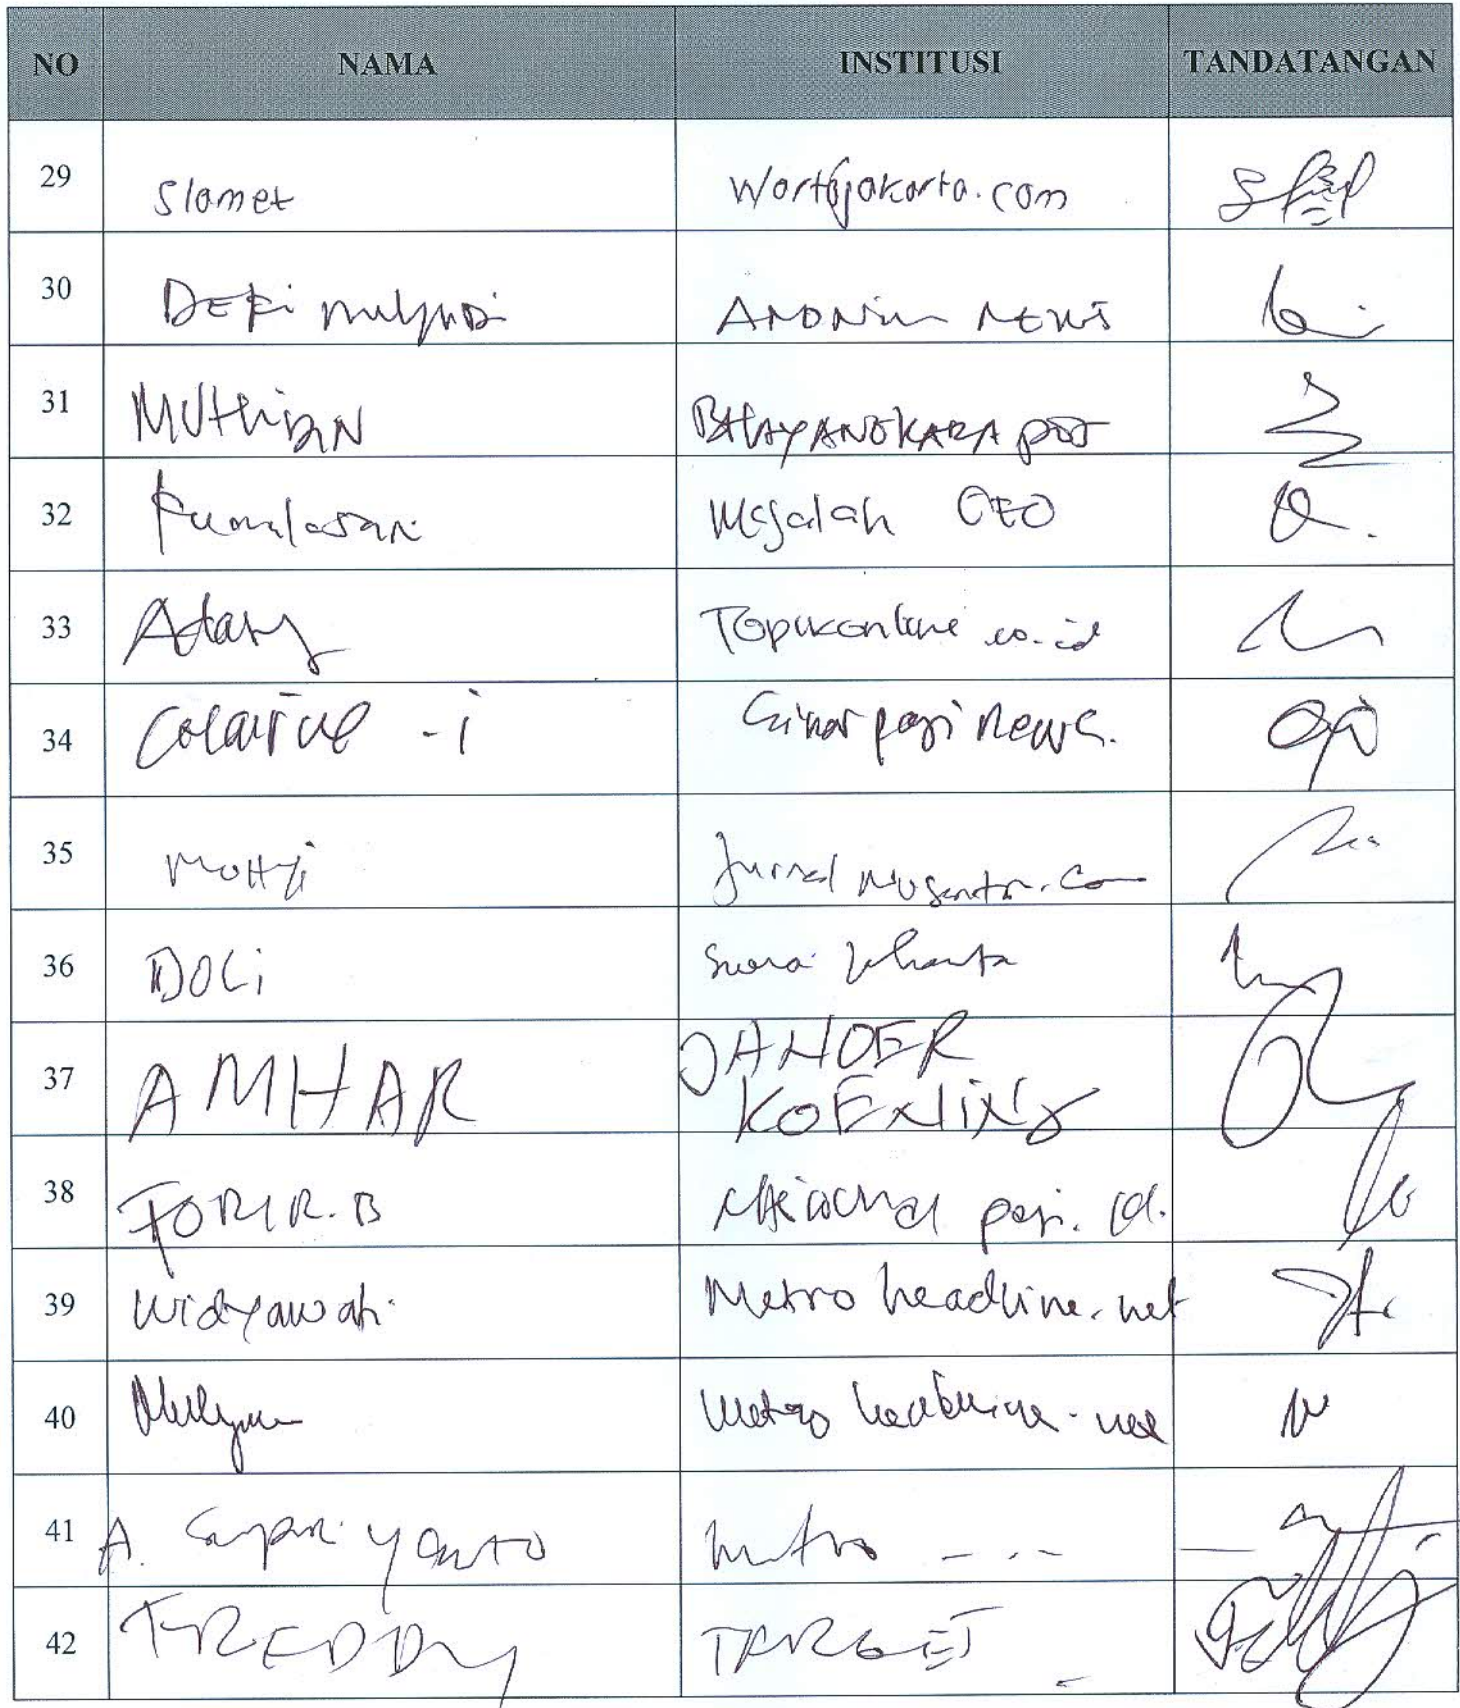 NO NAMA INSTITUSI TANDATANGAN
29 Slamet Wartajakarta.com
30 DEKi mulyadi ANONim NEWS
31 MUTHiAN BHAYANGKARA POS
32 Kumalasari Majalah CEO
33 Topikonline co.id
34 Sinar pagi news.
35 Jurnal Nusantara.Com
36 DOLi Suara
37 AMHAR JANOER
KOENiNG
38 .B Nasional pagi. id.
39 Widyawati Metro headline.net
40 Metro headline.net
41 A. Supriyanto Metro
42 FREDDy TARGET